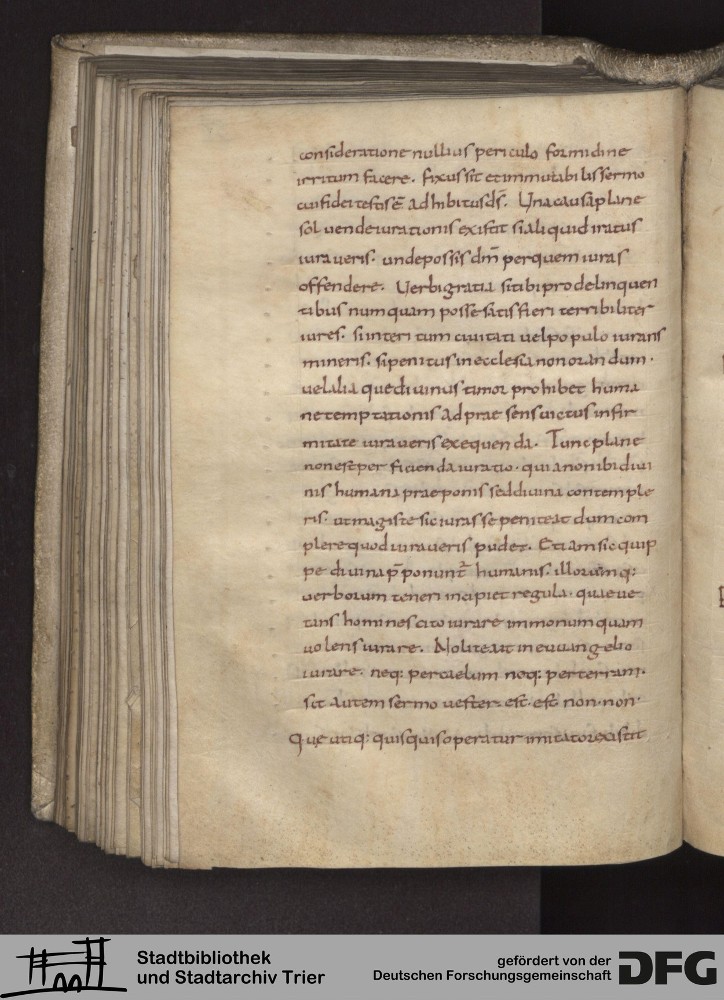 consideratione nullius periculo formidine
irritum facere. fixus sit et immutabilis sermo
cui fidei testis ē adhibitus d̄s. Una causa plane
soluende iurationis existit si aliquid iratus
iuraueris. unde possis dm̄ per quem iuras
offendere. Uerbi gratia si tibi pro delinquen
tibus numquam posse satis fieri terribiliter
iures. si interitum ciuitati uel populo iurans
mineris. si penitus in ecclesia non orandum.
uel alia que diuinus timor prohibet huma
ne temptationis ad prae sens uictus infir
mitate iuraueris exequenda. Tunc plane
non est perficienda iuratio. quia non ibi diui
nis humana praeponis sed diuina contemple
ris. ut magis te sic iurasse peniteat dum com
plere quod iuraueris pudet. Etiam sic quip
pe diuina p̄ponunt̄ humanis. illorum q:
uerborum teneri incipiet regula. quae ue
tans homines cito iurare immo numquam
uolens iurare. Nolite ait in euuangelio
iurare. neq: per caelum neq: per terram.
sit autem sermo uester. est. est non. non.
Que utiq: quisquis operatur imitator existit
Stadtbibliothek
und Stadtarchiv Trier
gefördert von der
Deutschen Forschungsgemeinschaft
DFG